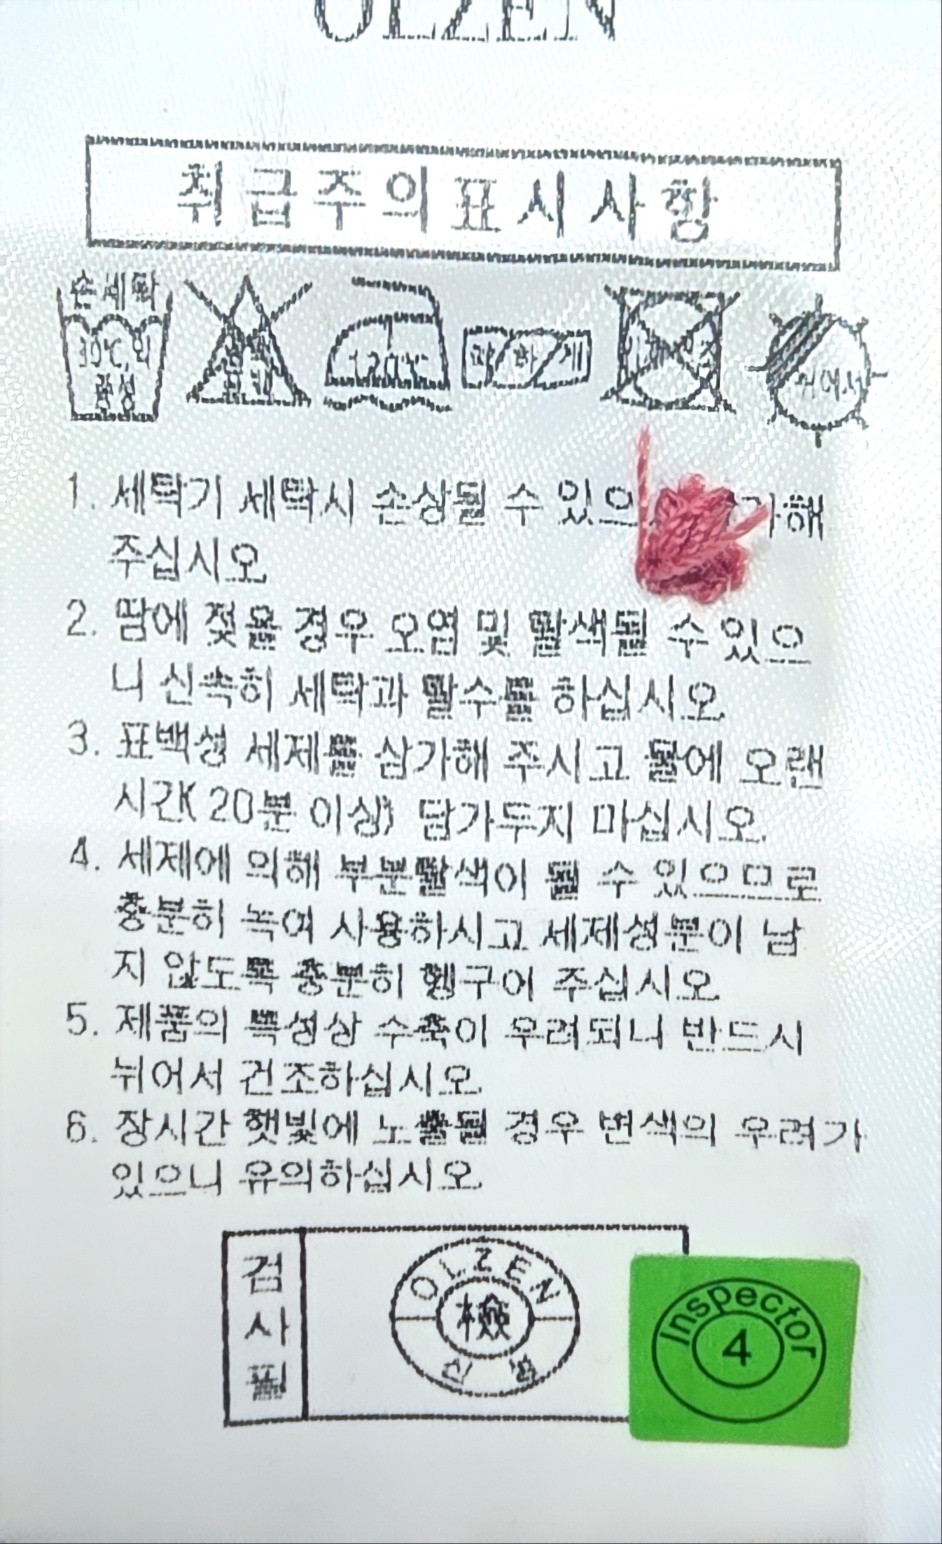 OLZEN
취급주의표시사항
손세탁
30℃,의
중성
120℃
약하게
뉘어서
1. 세탁기 세탁시 손상될 수 있으 가해
주십시오.
2. 땀에 젖을 경우 오염 및 탈색될 수 있으
니 신속히 세탁과 탈수를 하십시오.
3. 표백성 세제를 삼가해 주시고 물에 오랜
시간(20분 이상) 담가두지 마십시오.
4. 세제에 의해 부분탈색이 될 수 있으므로
충분히 녹여 사용하시고 세제성분이 남
지 않도록 충분히 헹구어 주십시오.
5. 제품의 특성상 수축이 우려되니 반드시
뉘어서 건조하십시오.
6. 장시간 햇빛에 노출될 경우 변색의 우려가
있으니 유의하십시오.
검사필
OLZEN
檢
Inspector
4